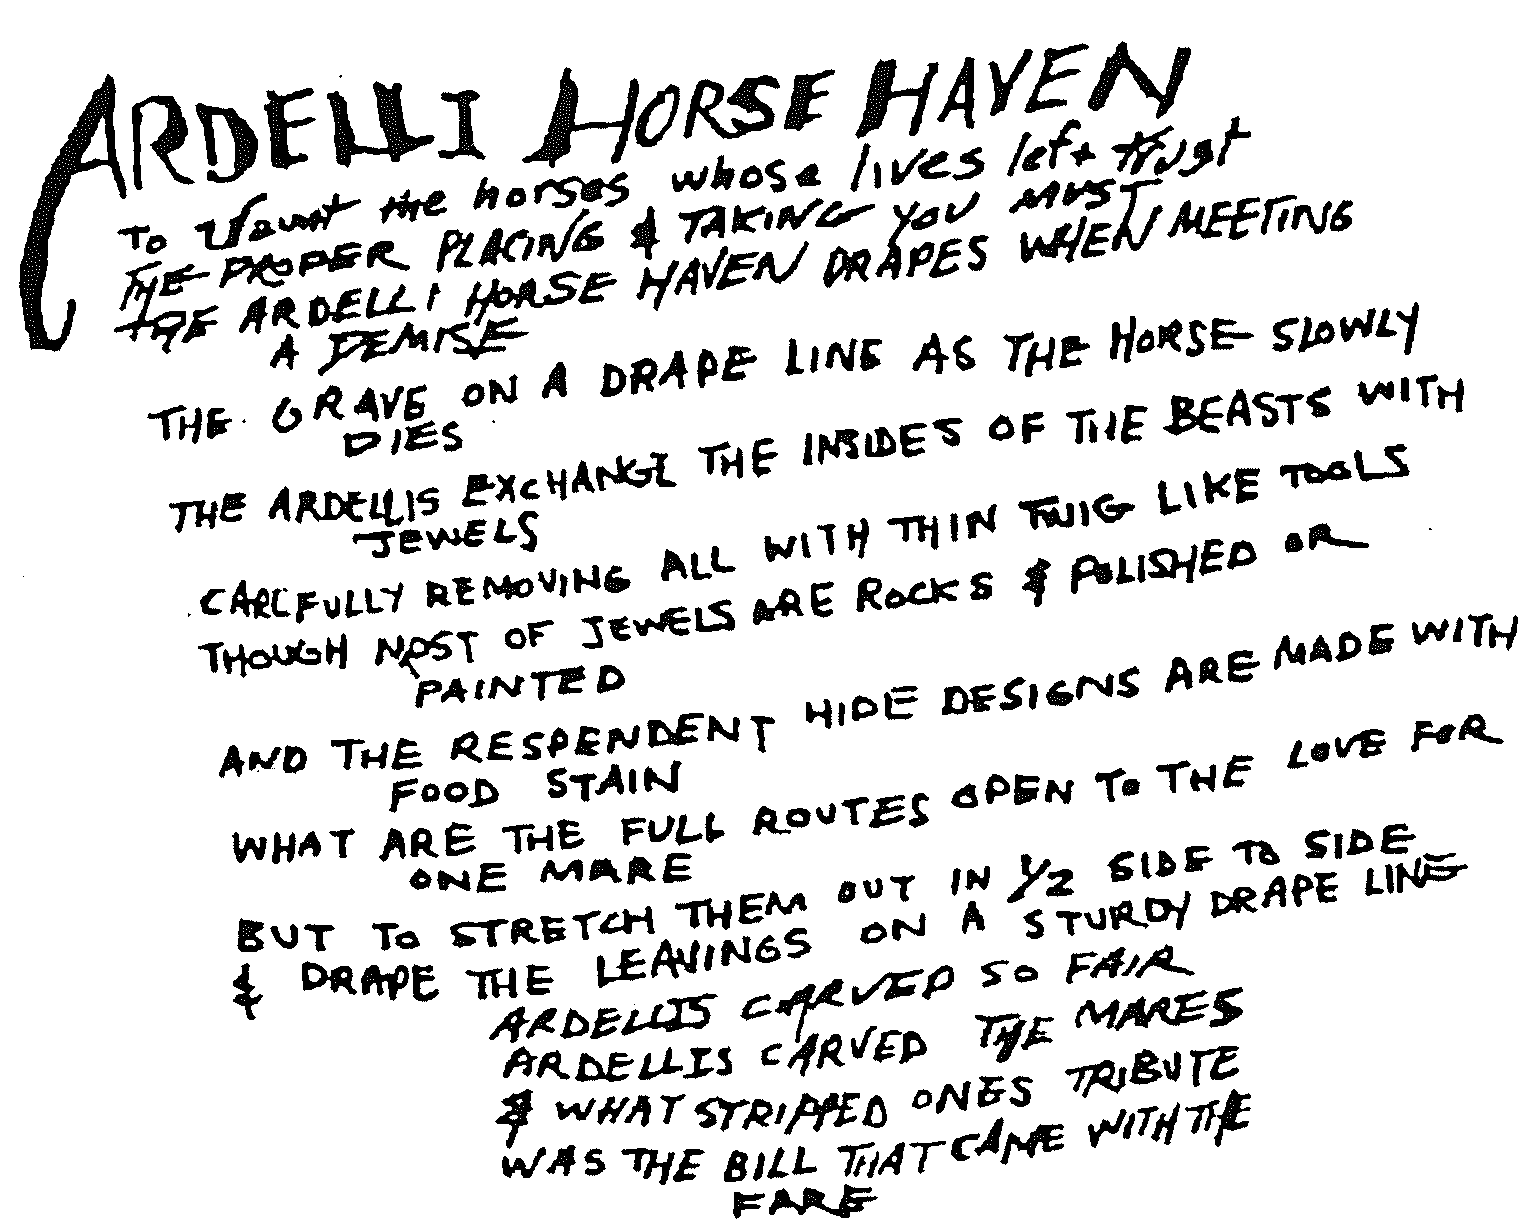 ARDELLI HORSE HAVEN
To vaunt the horses whose lives left trust
THE PROPER PLACING & TAKING YOU MUST
THE ARDELLI HORSE HAVEN DRAPES WHEN MEETING
A DEMISE
THE GRAVE ON A DRAPE LINE AS THE HORSE SLOWLY
DIES
THE ARDELLIS EXCHANGE THE INSIDES OF THE BEASTS WITH
JEWELS
CAREFULLY REMOVING ALL WITH THIN TWIG LIKE TOOLS
THOUGH MOST OF JEWELS ARE ROCKS & POLISHED OR
PAINTED
AND THE RESPENDENT HIDE DESIGNS ARE MADE WITH
FOOD STAIN
WHAT ARE THE FULL ROUTES OPEN TO THE LOVE FOR
ONE MARE
BUT TO STRETCH THEM OUT IN 1/2 SIDE TO SIDE
& DRAPE THE LEAVINGS ON A STURDY DRAPE LINE
ARDELLIS CARVED SO FAIR
ARDELLIS CARVED THE MARES
& WHAT STRIPPED ONES TRIBUTE
WAS THE BILL THAT CAME WITH THE
FARE